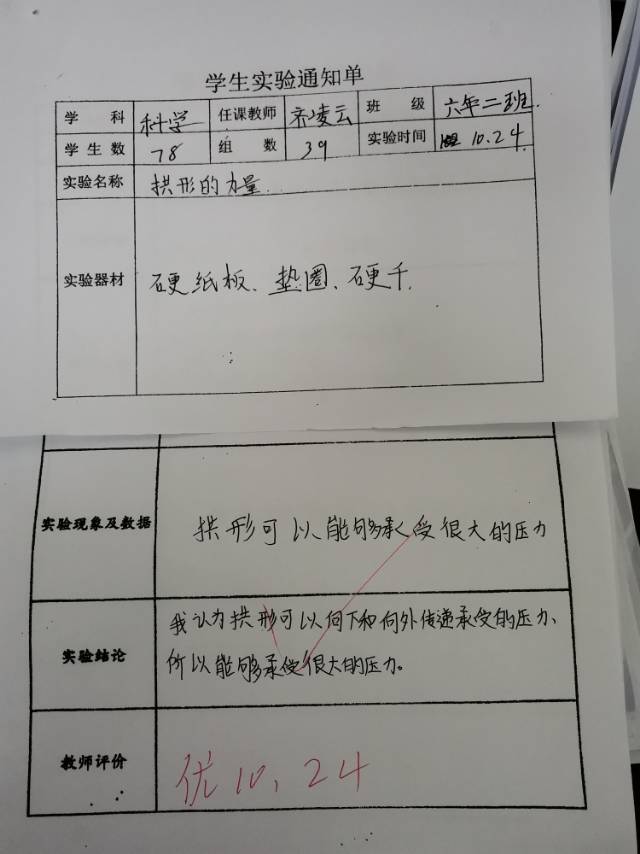 学生实验通知单
学 科 科学 任课教师 凌云 班 级 六年二班.
学生数 78 组 数 39 实验时间 10.24.
实验名称 拱形的力量.
实验器材 硬纸板、垫圈、硬千.
实验现象及数据 拱形可以能够承受很大的压力
我认为拱形可以向下和向外传递承受的压力、
实验结论 所以能够承受很大的压力。
教师评价 优 10.24